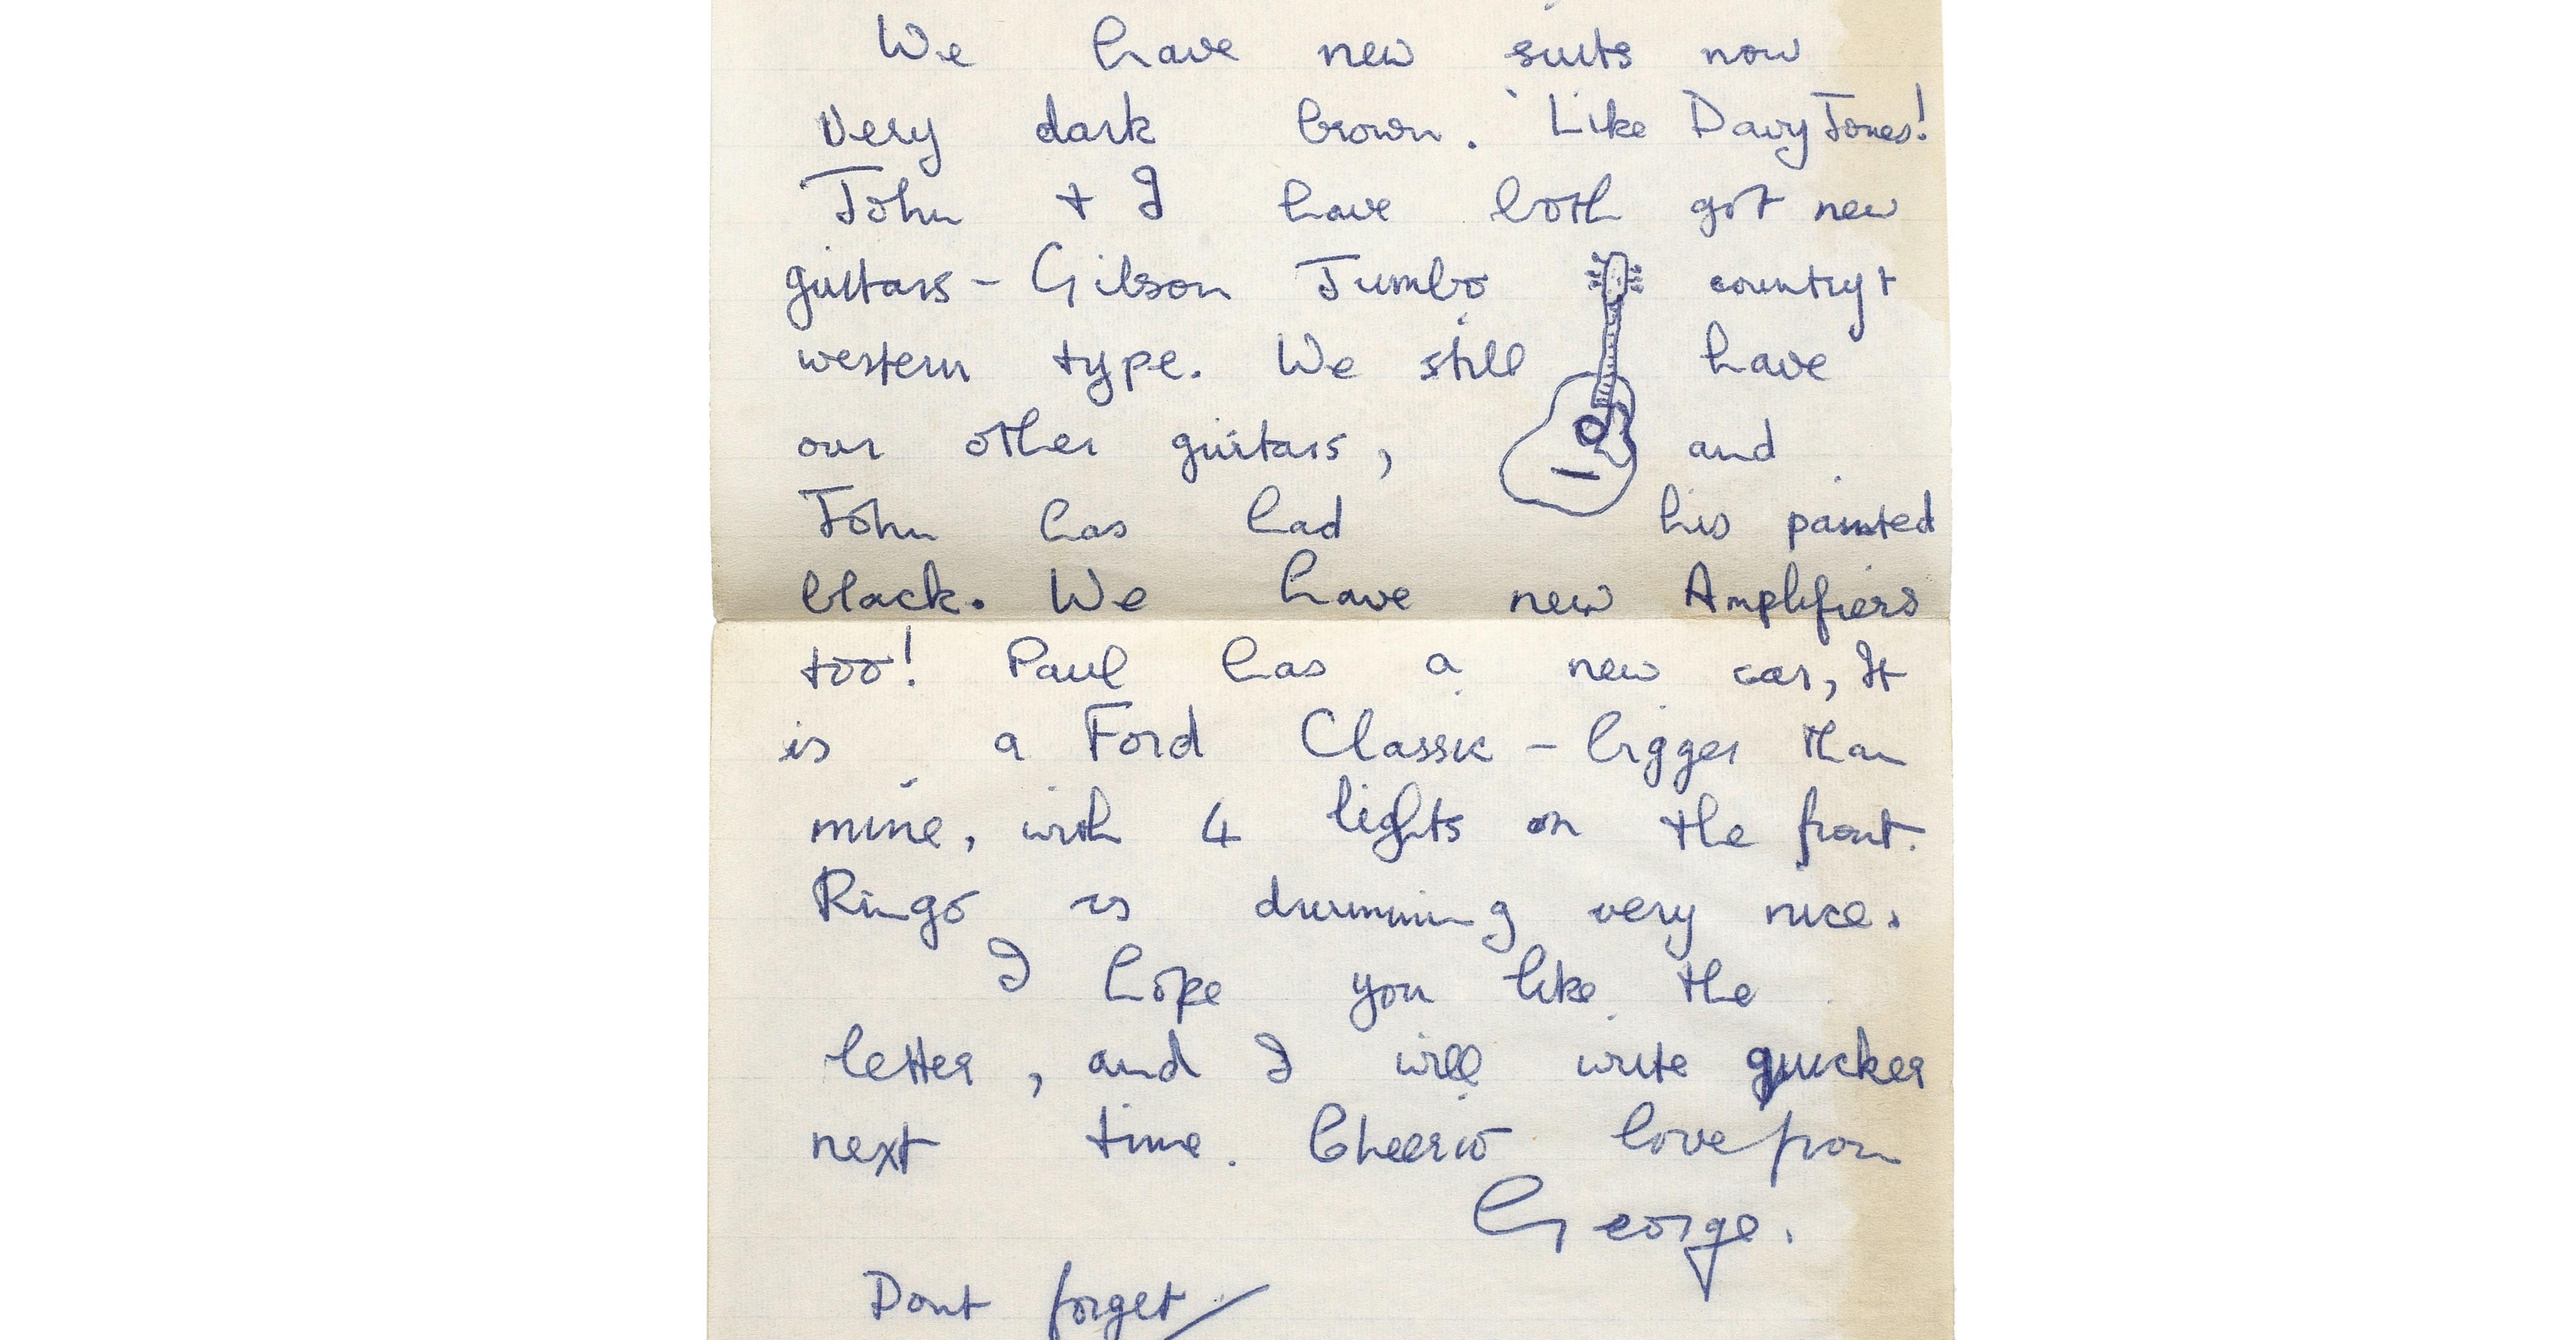 We have new suits now
very dark brown. Like Davy Jones!
John + I have both got new
guitars - Gibson Jumbo country +
western type. We still have
our other guitars, and
John has had his painted
black. We have new Amplifiers
too! Paul has a new car, It
is a Ford Classic - bigger than
mine, with 4 lights on the front.
Ringo is drumming very nice.
I hope you like the
letter, and I will write quicker
next time. Cheerio love from
George.
Dont forget